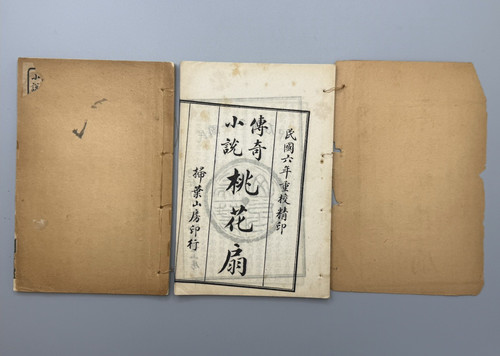 小説
民國六年重校精印
傳奇
小說
桃花扇
掃葉山房印行